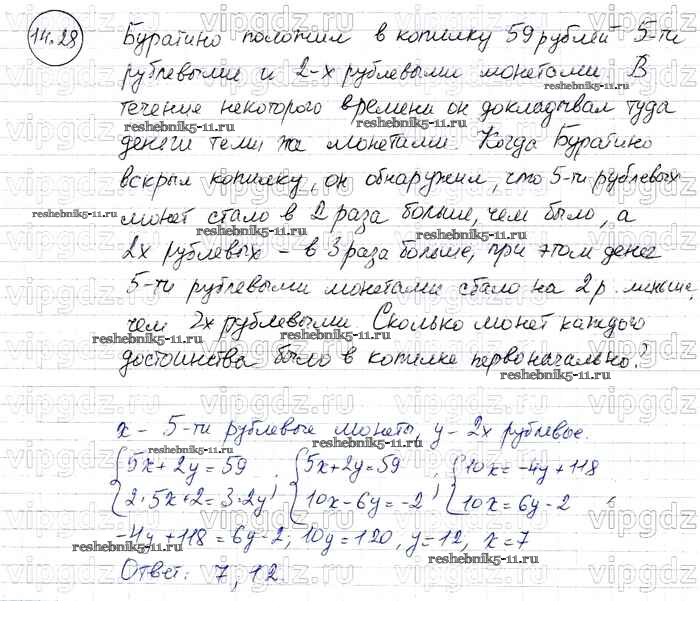 14.28
Буратино положил в копилку 59 рублей 5-ти
рублевыми и 2-х рублевыми монетами. В
течение некоторого времени он докладывал туда
деньги теми же монетами. Когда Буратино
вскрыл копилку, он обнаружил, что 5-ти рублевых
монет стало в 2 раза больше, чем было, а
2х рублевых – в 3 раза больше, при этом денег
5-ти рублевыми монетами стало на 2 р. меньше,
чем 2х рублевыми. Сколько монет каждого
достоинства было в копилке первоначально?
x - 5-ти рублевые монеты, y - 2х рублевые.
{5x+2y=59 ; {5x+2y=59 ; {10x=-4y+118
{2·5x+2=3·2y {10x-6y=-2 {10x=6y-2 ;
-4y+118=6y-2; 10y=120, y=12, x=7
Ответ: 7, 12.
vipgdz.ru
reshebnik5-11.ru